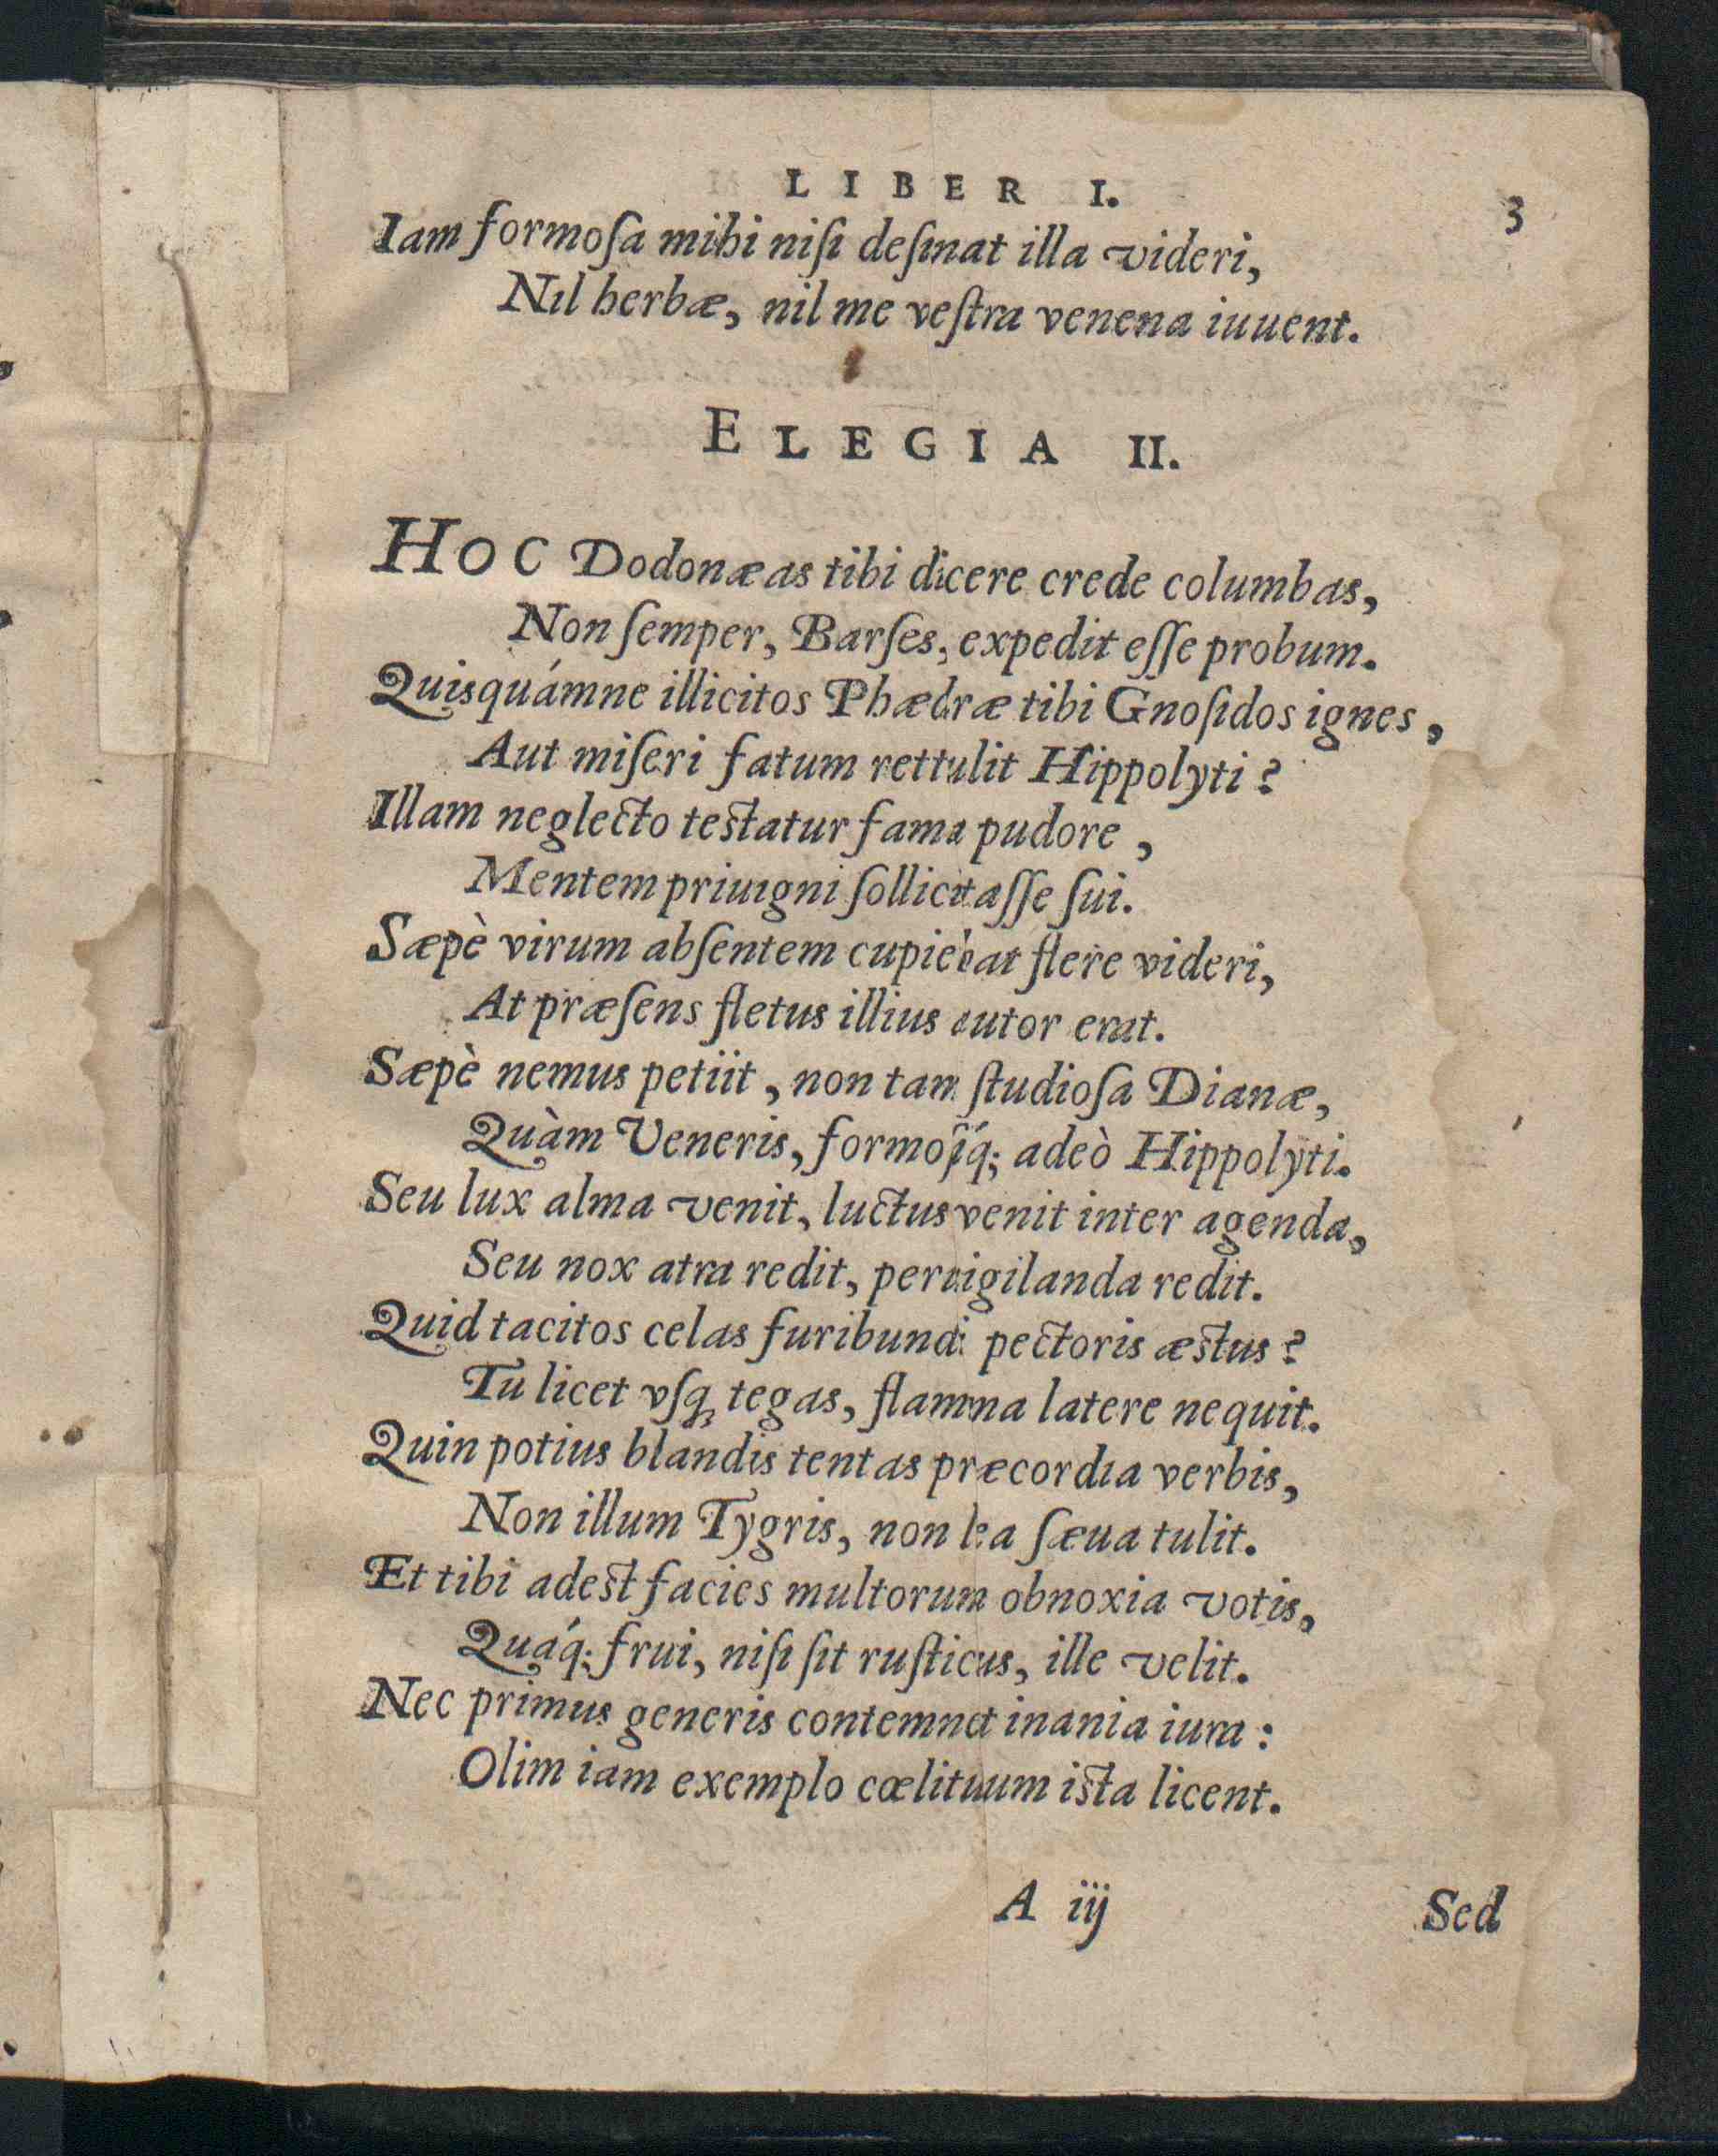 LIBER I. 3
Iam formoſa mihi niſi deſinat illa videri,
Nil herbæ, nil me veſtra venena iuuent.
ELEGIA II.
HOC Dodonæas tibi dicere crede columbas,
Non ſemper, Barſes, expedit eſſe probum.
Quisquámne illicitos Phædræ tibi Gnoſidos ignes,
Aut miſeri fatum rettulit Hippolyti?
Illam neglecto testatur fama pudore,
Mentem priuigni ſollicitaſſe ſui.
Sæpè virum abſentem cupiebat flere videri,
At præſens fletus illius autor erat.
Sæpè nemus petiit, non tam ſtudioſa Dianæ,
Quàm Veneris, formoſiq́; adeò Hippolyti.
Seu lux alma venit, luctus venit inter agenda,
Seu nox atra redit, peruigilanda redit.
Quid tacitos celas furibundi pectoris æstus?
Tu licet vſq; tegas, flamma latere nequit.
Quin potius blandis tentas præcordia verbis,
Non illum Tygris, non lea ſæua tulit.
Et tibi adest facies multorum obnoxia votis,
Quáq; frui, niſi ſit ruſticus, ille velit.
Nec primus generis contemnet inania iura:
Olim iam exemplo cœlituum ista licent.
A iij Sed